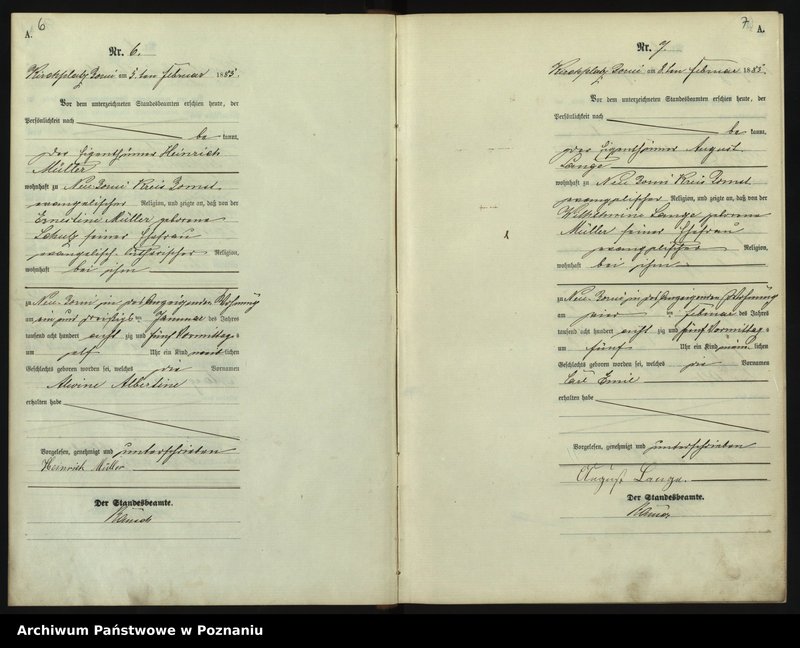 6
A.
Nr. 6.
Kirchplatz Borui am 3. ten Februar 1885.
Vor dem unterzeichneten Standesbeamten erschien heute, der
Persönlichkeit nach
be kannt,
der Eigenthümer Heinrich
Müller
wohnhaft zu Neu Borui Kreis Bomst
evangelischer Religion, und zeigte an, daß von der
Ernestine Müller geborene
Schulz seiner Ehefrau
evangelisch lutherischer Religion,
wohnhaft bei ihm
zu Neu-Borui in des Anzeigenden Wohnung
am ein und dreißigsten Januar des Jahres
tausend acht hundert acht zig und fünf Vormittags
um elf Uhr ein Kind weiblichen
Geschlechts geboren worden sei, welches die Vornamen
Alwine Albertine
erhalten habe
Vorgelesen, genehmigt und unterschrieben
Heinrich Müller
Der Standesbeamte.
7
A.
Nr. 7.
Kirchplatz Borui am 8. ten Februar 1885.
Vor dem unterzeichneten Standesbeamten erschien heute, der
Persönlichkeit nach
be kannt,
der Eigenthümer August
Lange
wohnhaft zu Neu Borui Kreis Bomst
evangelischer Religion, und zeigte an, daß von der
Wilhelmine Lange geborene
Müller seiner Ehefrau
evangelischer Religion,
wohnhaft bei ihm
zu Neu-Borui in des Anzeigenden Wohnung
am vier ten Februar des Jahres
tausend acht hundert acht zig und fünf Vormittags
um fünf Uhr ein Kind männlichen
Geschlechts geboren worden sei, welches die Vornamen
Carl Emil
erhalten habe
Vorgelesen, genehmigt und unterschrieben
August Lange.
Der Standesbeamte.
Archiwum Państwowe w Poznaniu